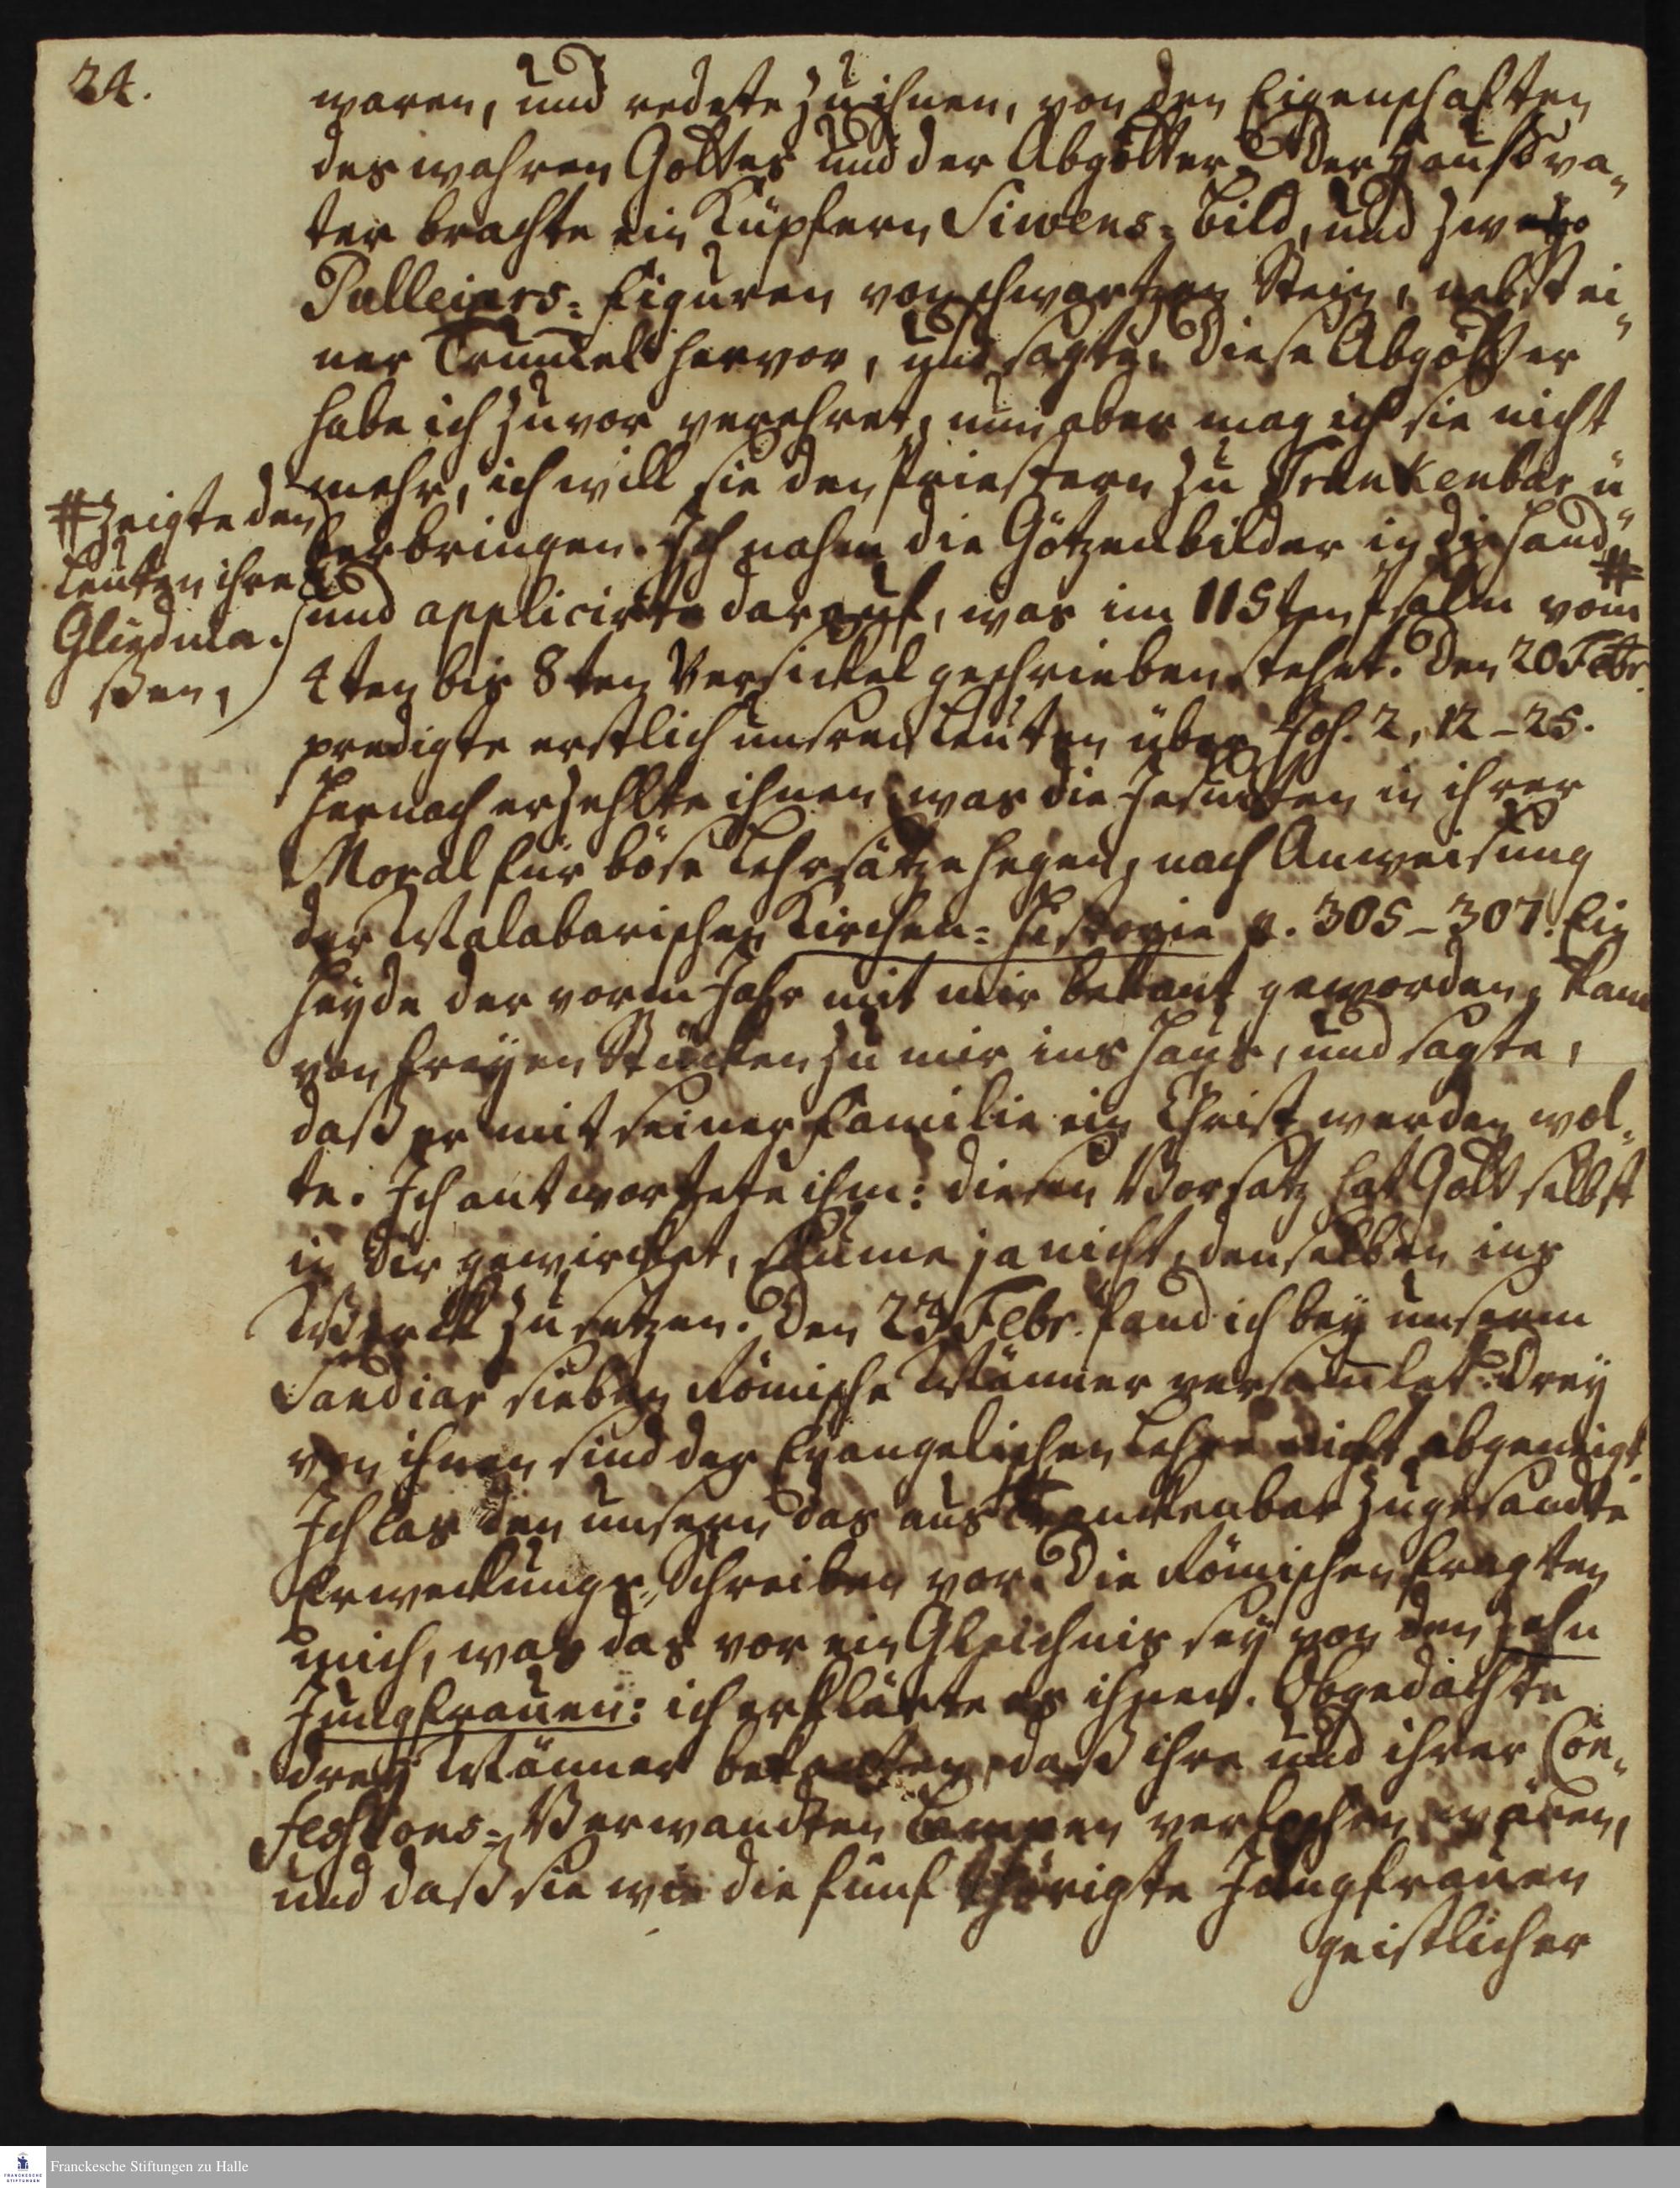 24.
waren, und redete zu ihnen, von den Eigenschaften
des wahren Gottes und der Abgötter. Der Haußva„
ter brachte ein Küpfern Siwens= Bild, und zwey
Pulleiars= Figuren von schwartzen Stein, nebst ei„
ner Trummel hervor, und sagte: Diese Abgötter
habe ich zuvor verehret, nun aber mag ich sie nicht
mehr, ich will sie den Priestern zu Trankenbar ü„
berbringen. Ich nahm die Götzenbilder in die Hand, #
# zeigte den
Leuten ihre
Gliedma„
ßen,
und applicirte darauf, was im 115ten Psalm vom
4ten bis 8ten Versickel geschrieben stehet. Den 20 Febr.
predigte erstlich unsren Leuten über Joh. 2, 12-25.
Hernach erzehlte ihnen, was die Jesuiten in ihrer
Moral für böse Lehrsätze hegen, nach Anweisung
der Malabarischen Kirchen= Historie p. 305-307. Ein
Heyde der vorm Jahr mit mir bekant geworden, kam
von freyen Stücken zu mir ins Haus, und sagte,
daß er mit seiner Familie ein Christ werden wol„
te. Ich antwortete ihm: diesen Vorsatz hat Gott selbst
in dir gewircket, säume ja nicht, denselben ins
Werck zu setzen. Den 23 Febr. fand ich bey unserm
Sandiar sieben Römische Männer versamlet. Drey
von ihnen sind der Evangelischen Lehre nicht abgeneigt.
Ich las den unsern das aus Tranckenbar zugesandte
Erweckungs= Schreiben vor. Die Römischen fragten
mich, was das vor ein Gleichnis sey von den zehn
Jungfrauen: ich erklärte es ihnen. Obgedachte
drey Männer bekanten, daß ihre und ihrer Con„
fessions= Verwandten Lampen verloschen wären,
und daß sie wie die fünf thörigte Jungfrauen
geistlicher
FRANCKESCHE STIFTUNGEN
Franckesche Stiftungen zu Halle